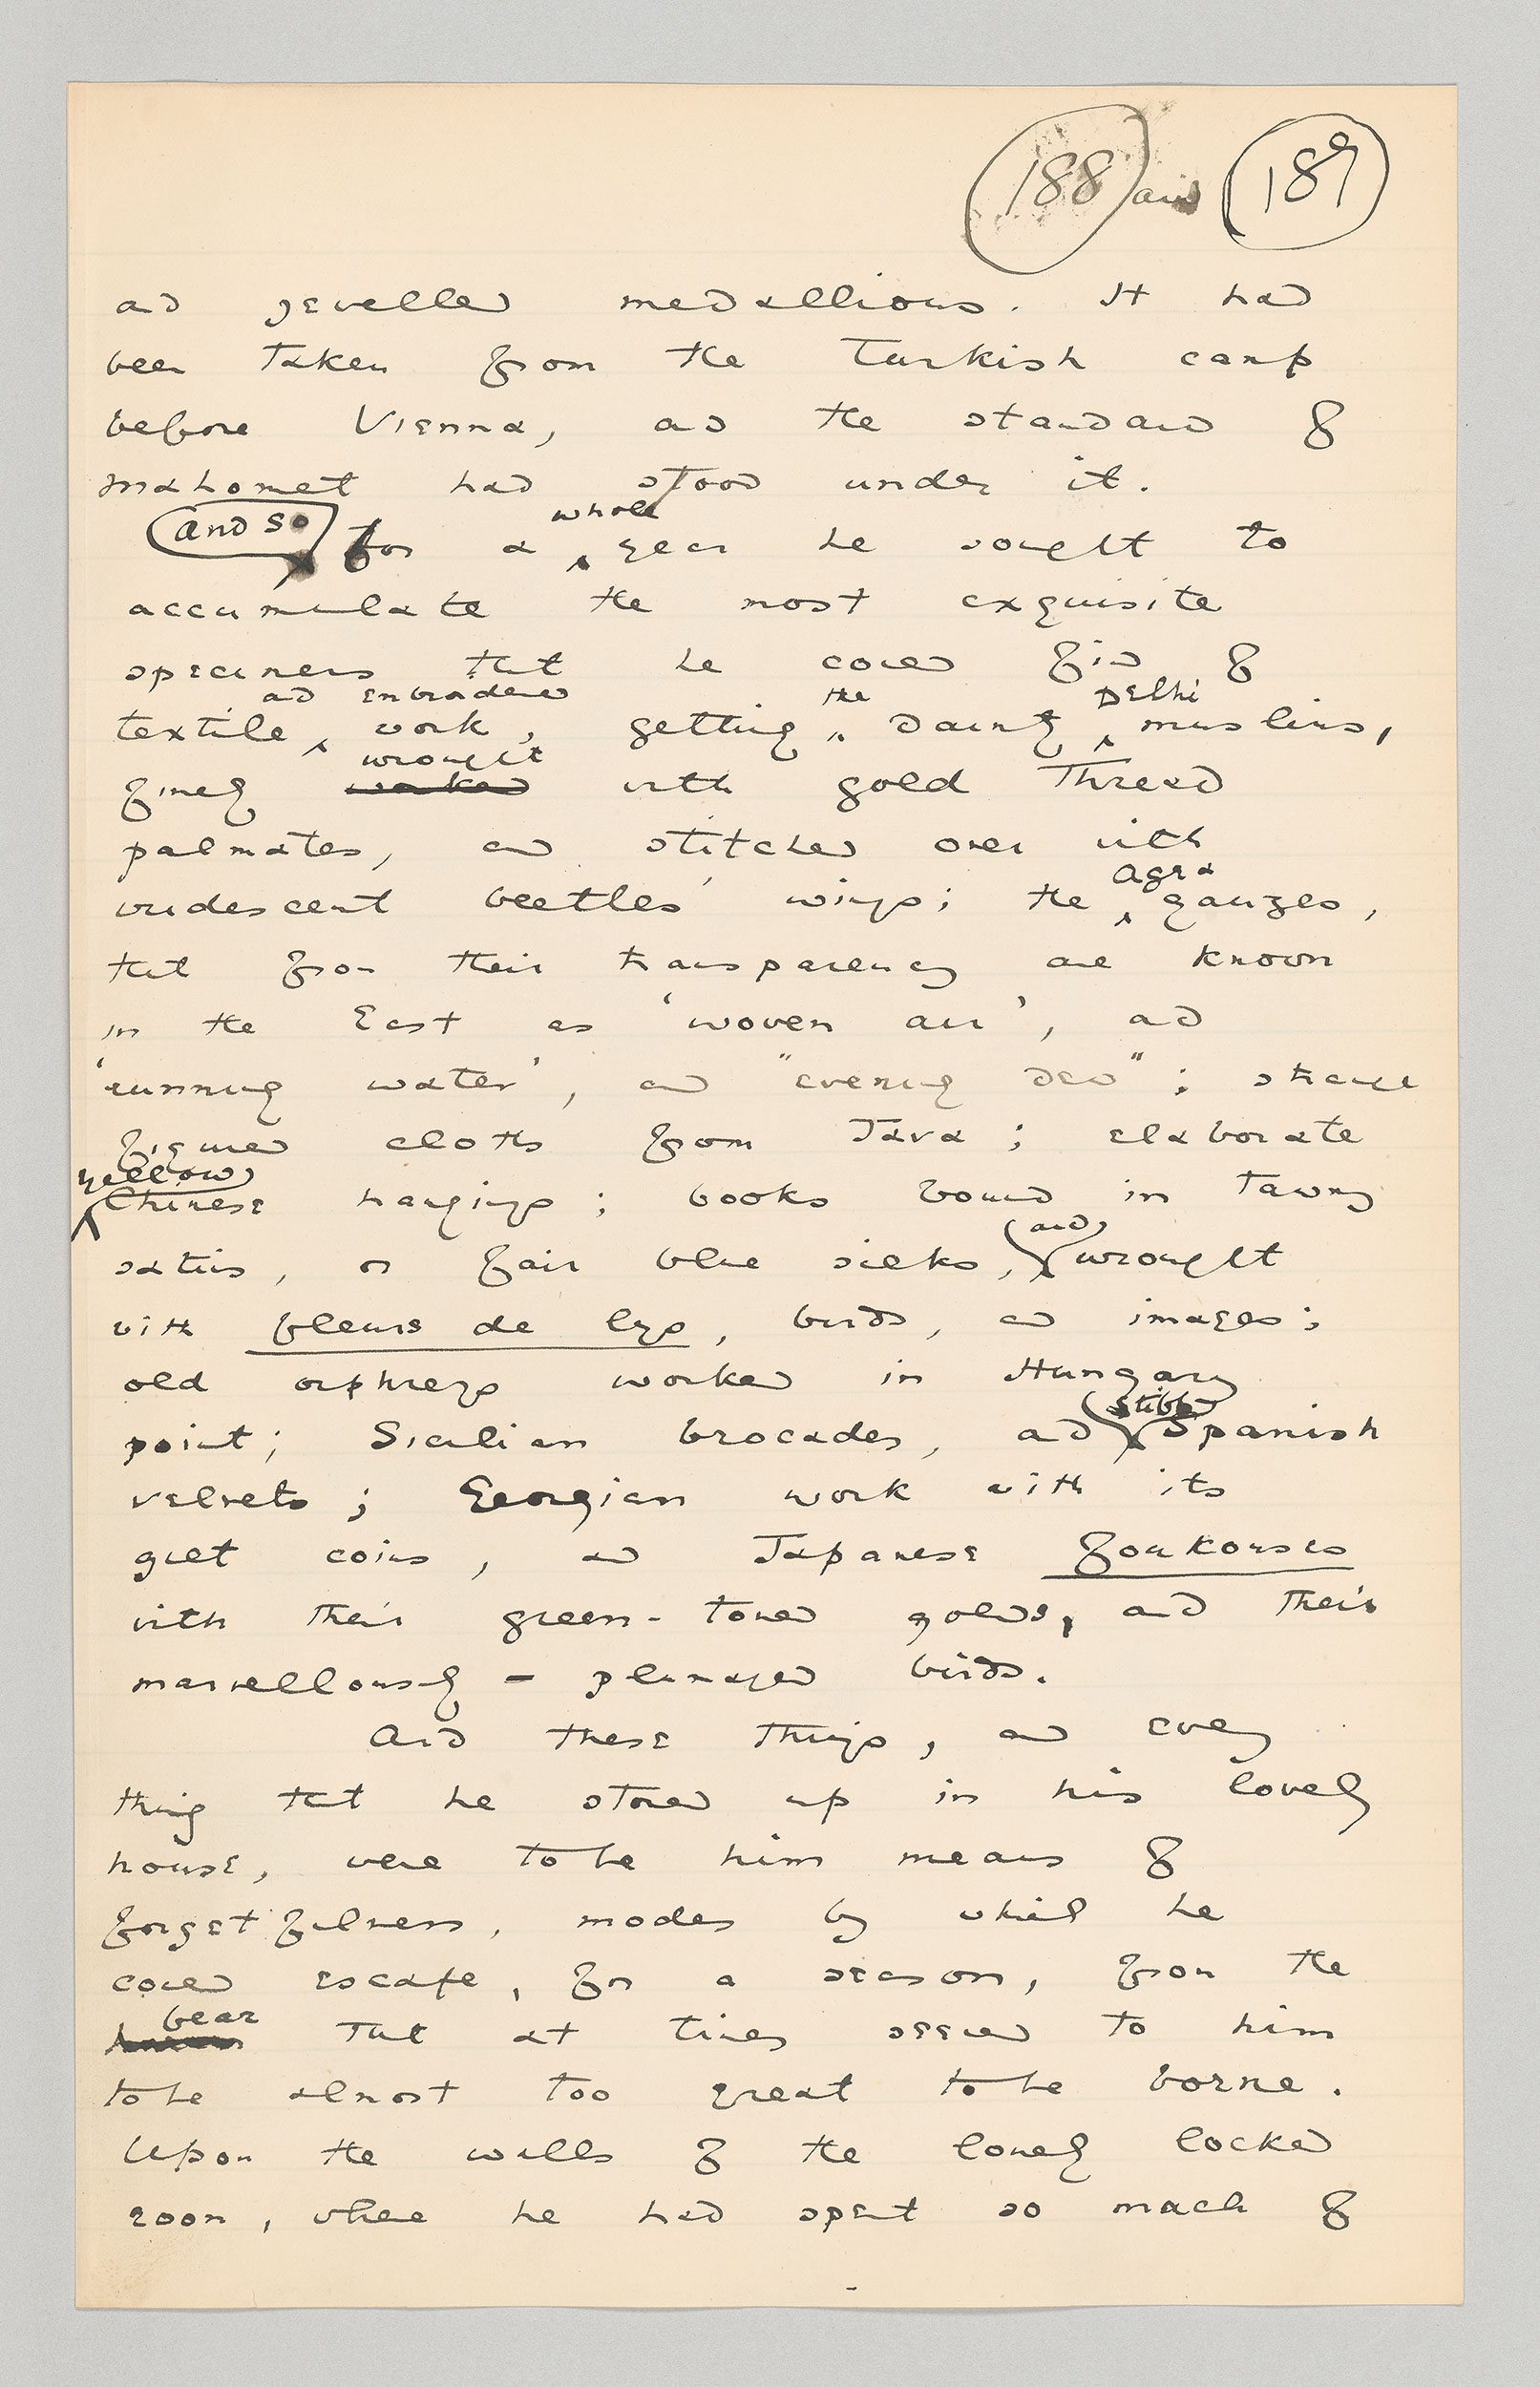 188 and 189
and jewelled medallions. It had
been taken from the Turkish camp
before Vienna, and the standard of
Mahomet had stood under it.
and so for a whole year he sought to
accumulate the most exquisite
specimens that he could find of
textile and embroidered work, getting the dainty Delhi muslins,
finely worked wrought with gold thread
palmates, and stitched over with
iridescent beetles' wings; the Agra gauzes,
that from their transparency are known
in the East as 'woven air', and
'running water', and "evening dew"; strange
figured cloths from Java; elaborate
yellow Chinese hangings; books bound in tawny
satins, or fair blue silks, and wrought
with fleurs de lys, birds, and images;
old orphreys worked in Hungary
point; Sicilian brocades, and stiff Spanish
velvets; Georgian work with its
gilt coins, and Japanese Foukousas
with their green-toned golds, and their
marvellously-plumaged birds.
And these things, and every
thing that he stored up in his lovely
house, were to be him means of
forgetfulness, modes by which he
could escape, for a season, from the
fear that at times seemed to him
to be almost too great to be borne.
Upon the walls of the lonely locked
room, where he had spent so much of